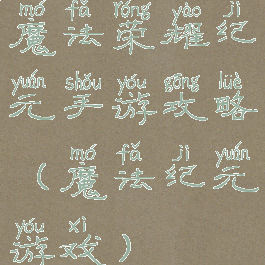 mó fǎ róng yào jì
魔法荣耀纪
yuán shǒu yóu gōng lüè
元手游攻略
mó fǎ jì yuán
（魔法纪元
yóu xì
游戏）